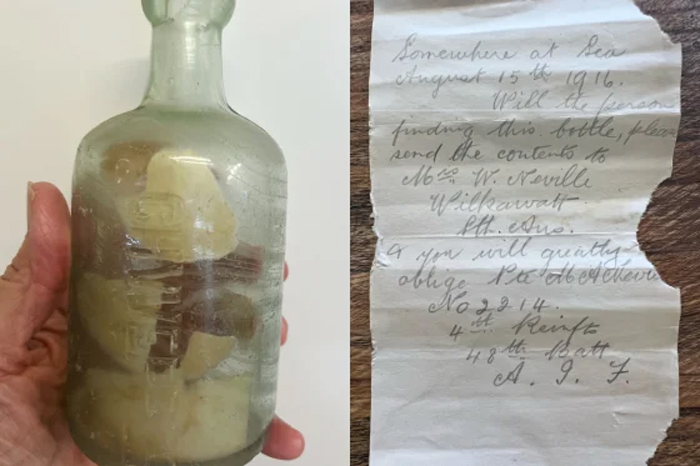 Somewhere at Sea
August 15th 1916.
Will the person
finding this bottle, please
send the contents to
Mrs W. Neville
Wilkawatt
Sth. Aus.
& you will greatly
oblige Pte M. A. Neville
No 2214.
4th Reinfts
48th Batt
A. I. F.